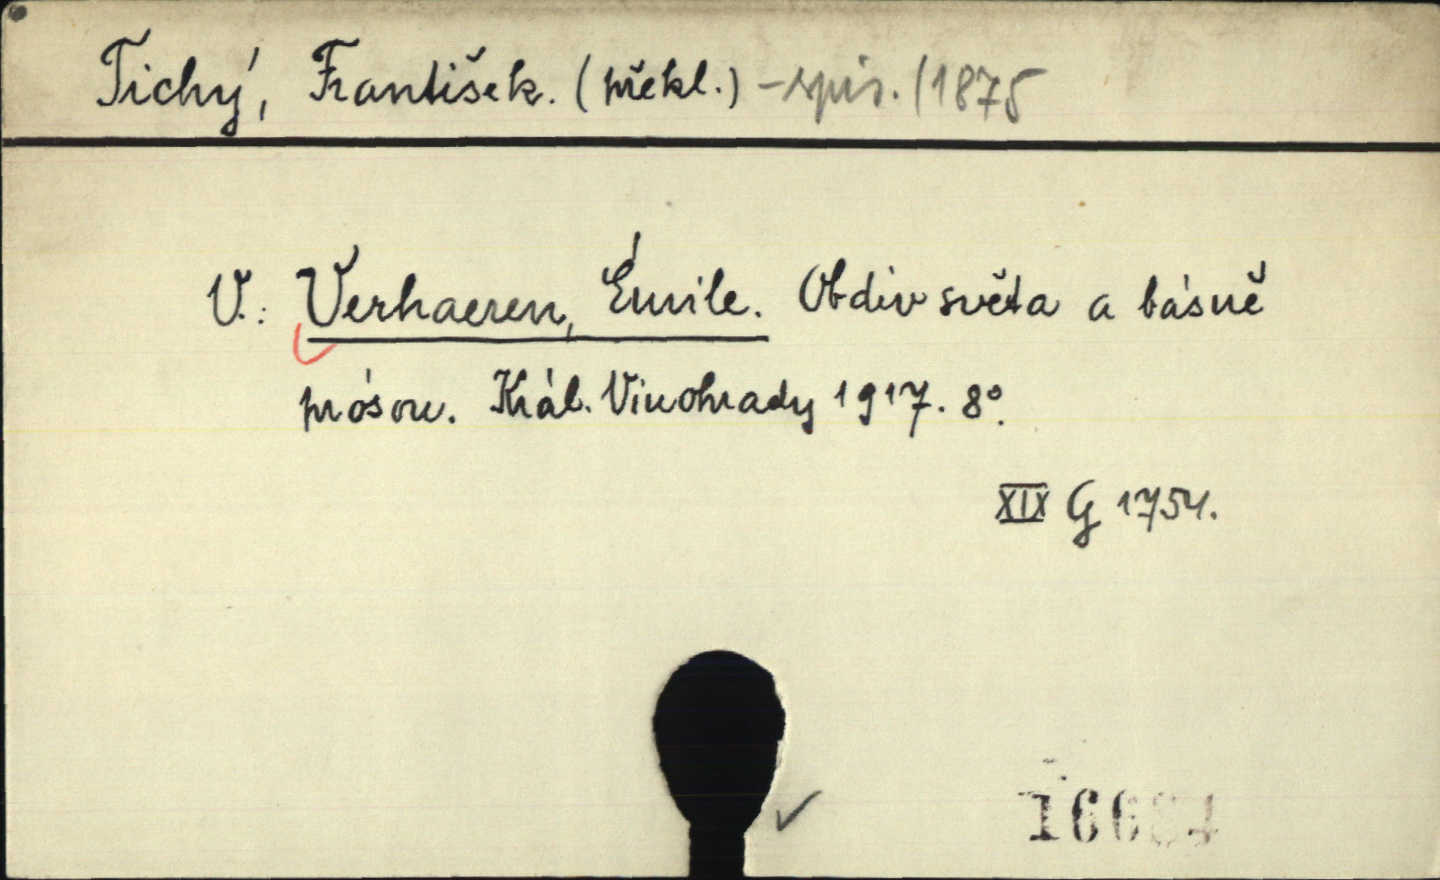 Tichý, František. (překl.) - spis. (1875
V.: Verhaeren, Émile. Obdiv světa a básně
prósou. Král. Vinohrady 1917. 8°.
XIX G 1754.